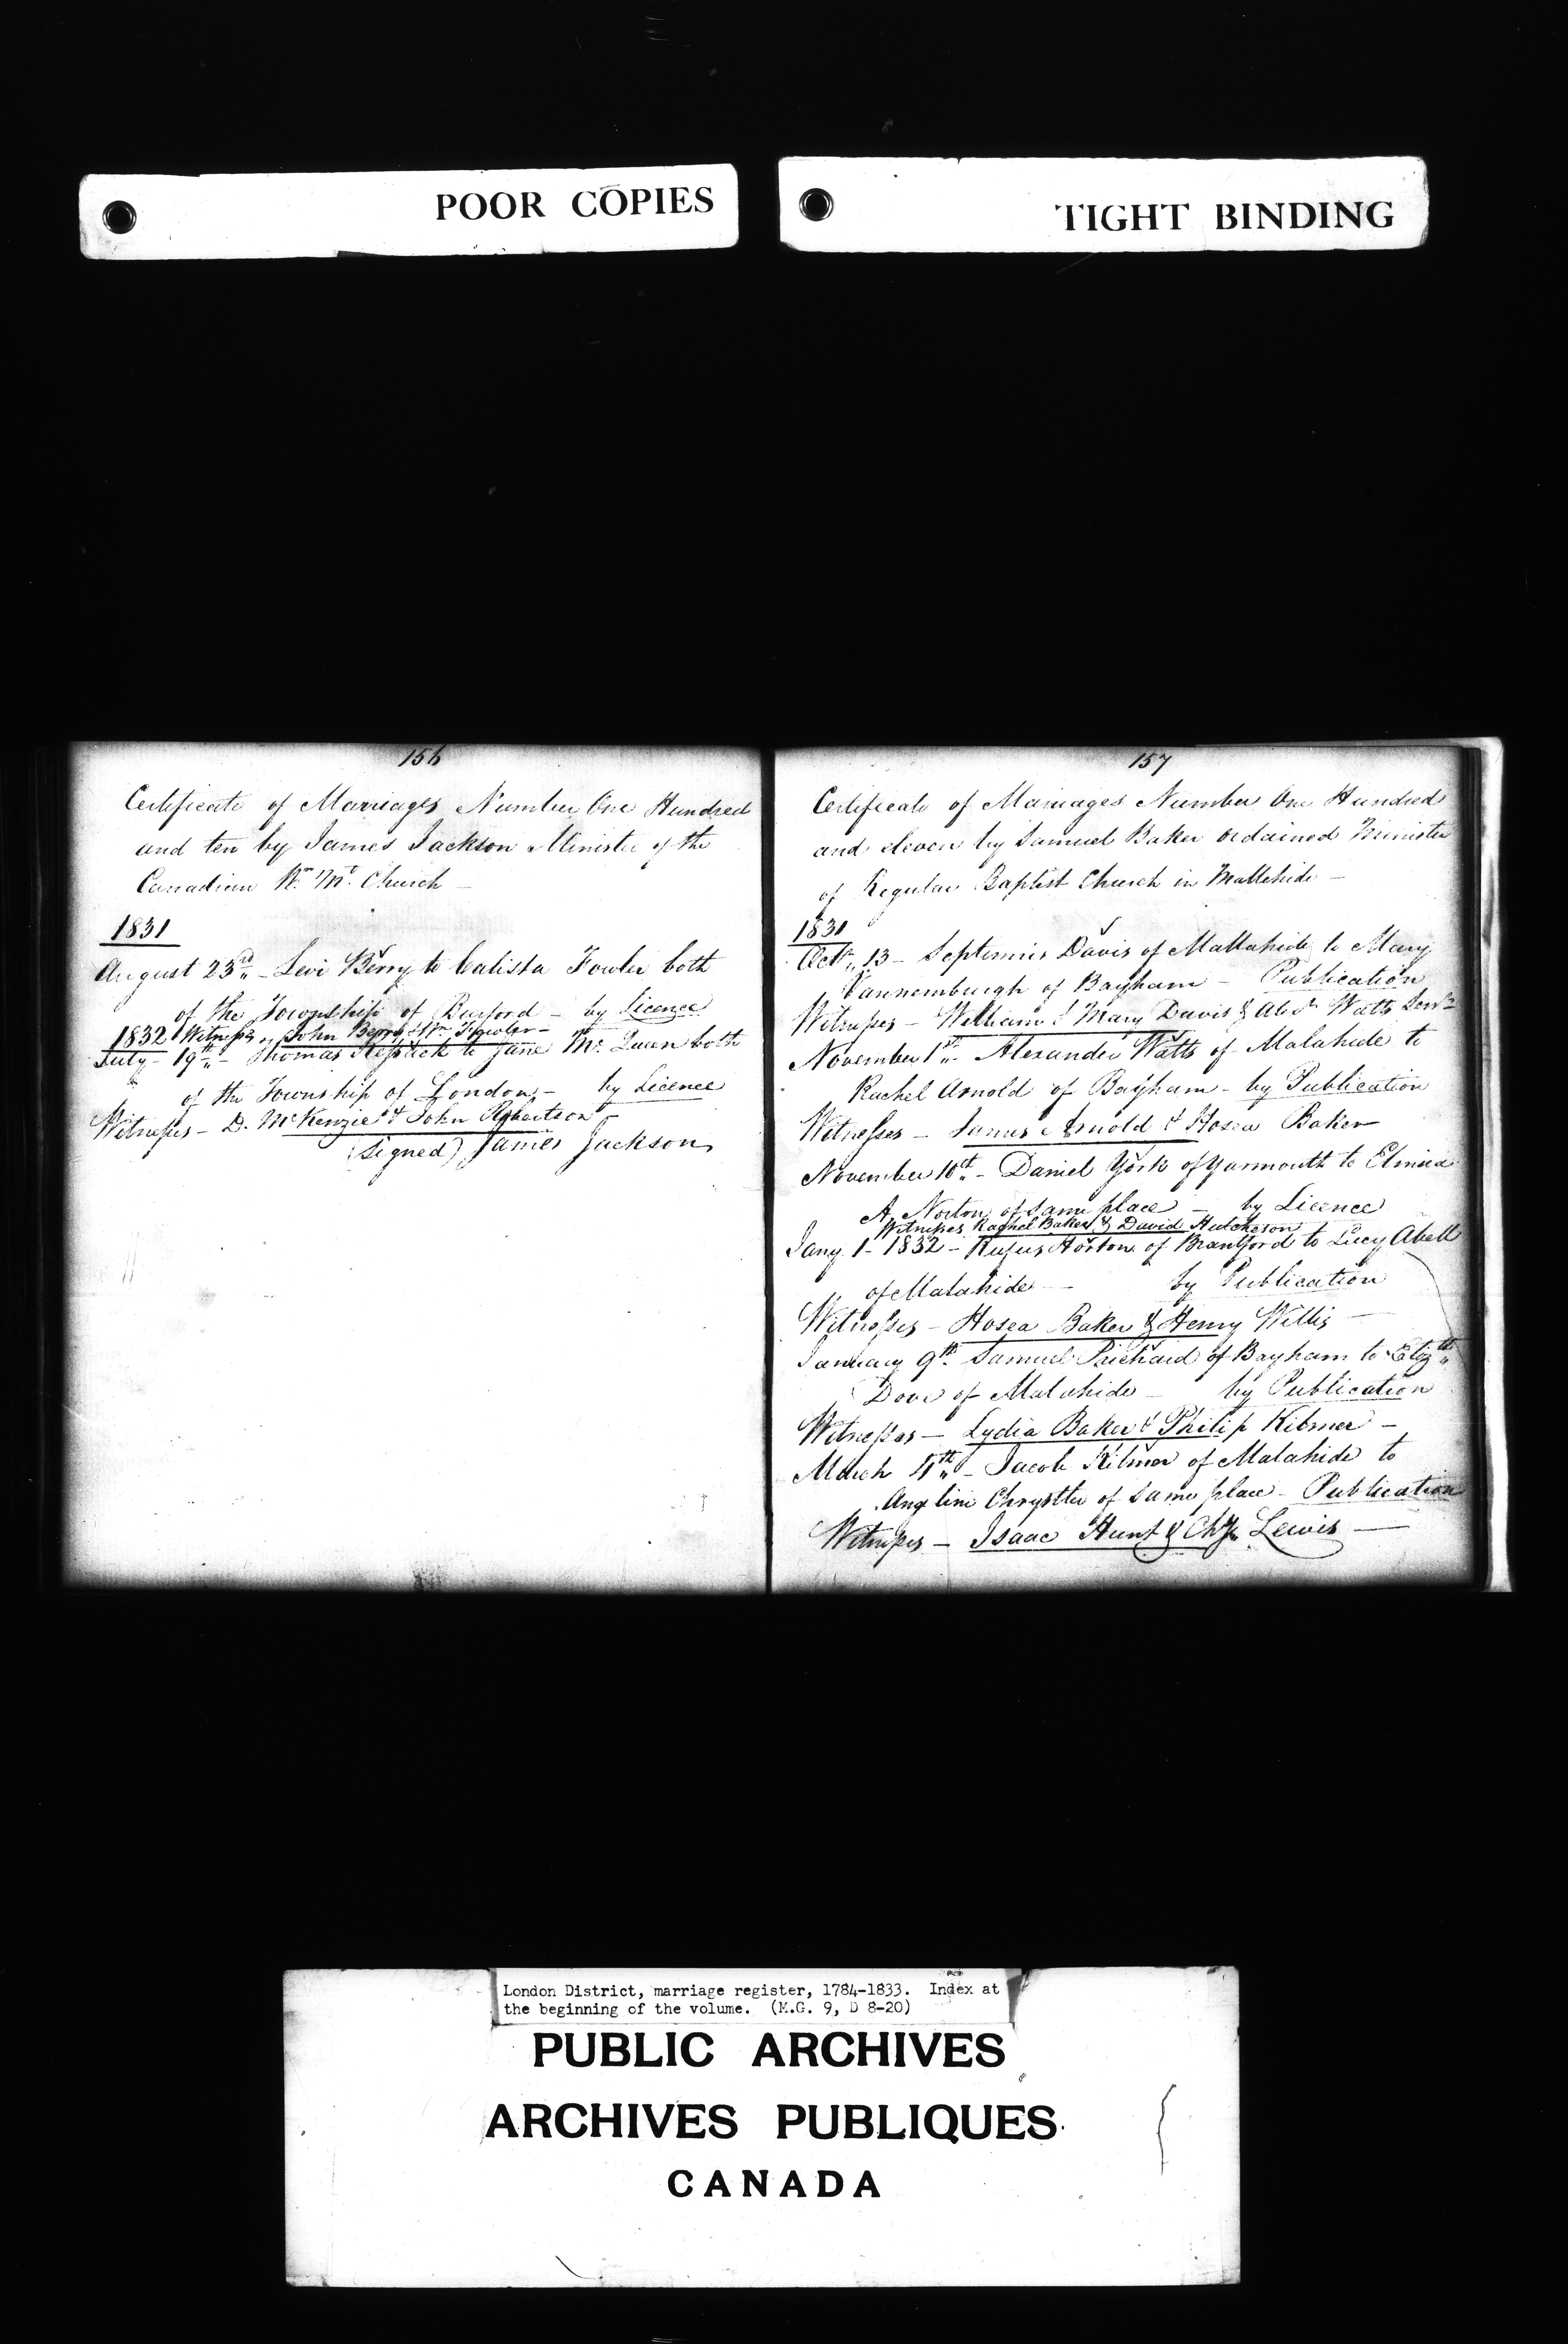 POOR COPIES
TIGHT BINDING
156
Certificate of Marriages Number One Hundred
and ten by James Jackson Minister of the
Canadian Church —
1831
August 23rd — Levi Berry to Calista Fowler both
of the Township of Burford — by Licence
1832 Witnesses John Berry & Wm Fowler —
July 19th — Thomas to Jane Mc Queen both
of the Township of London — by Licence
Witnesses — D. McKenzie & John Robertson —
(Signed) James Jackson
157
Certificate of Marriages Number One Hundred
and eleven by Samuel Baker ordained Minister
of Regular Baptist Church in Mallahide —
1831
Octr 13 — Septimus Davis of Mallahide to Mary
Vannemburgh of Bayham — Publication
Witnesses — William & Mary Davis & Alexr Watts Senr
November 1st Alexander Watts of Malahide to
Rachel Arnold of Bayham — by Publication
Witnesses — Arnold & Hosea Baker
November 10th — Daniel York of Yarmouth to Elmira
A Norton of same place — by Licence
Witnesses Rachel Baker & David Hutcheson
Jany 1 — 1832 — Rufus Horton of Brantford to Lucy Abell
of Malahide — by Publication
Witnesses — Hosea Baker & Henry Willis —
January 9th Samuel Prichard of Bayham to Elizth
Dove of Malahide — by Publication
Witnesses — Lydia Baker & Philip Kilmer —
March 4th — Jacob Kilmer of Malahide to
Angeline Chrystler of same place — Publication
Witnesses — Isaac Hunt & Lewis —
London District, marriage register, 1784-1833. Index at
the beginning of the volume. (M.G. 9, D 8-20)
PUBLIC ARCHIVES
ARCHIVES PUBLIQUES
CANADA